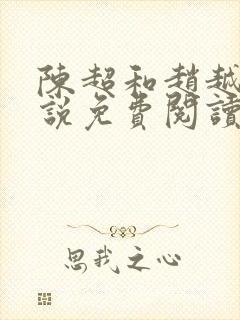 陳超和趙越
說免費閱讀
思我之心